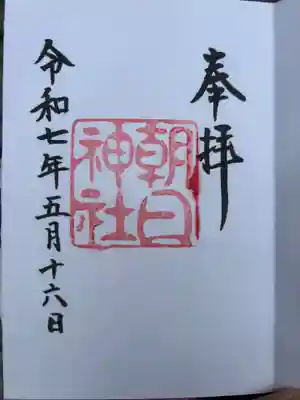 奉拝
朝日神社
令和七年五月十六日